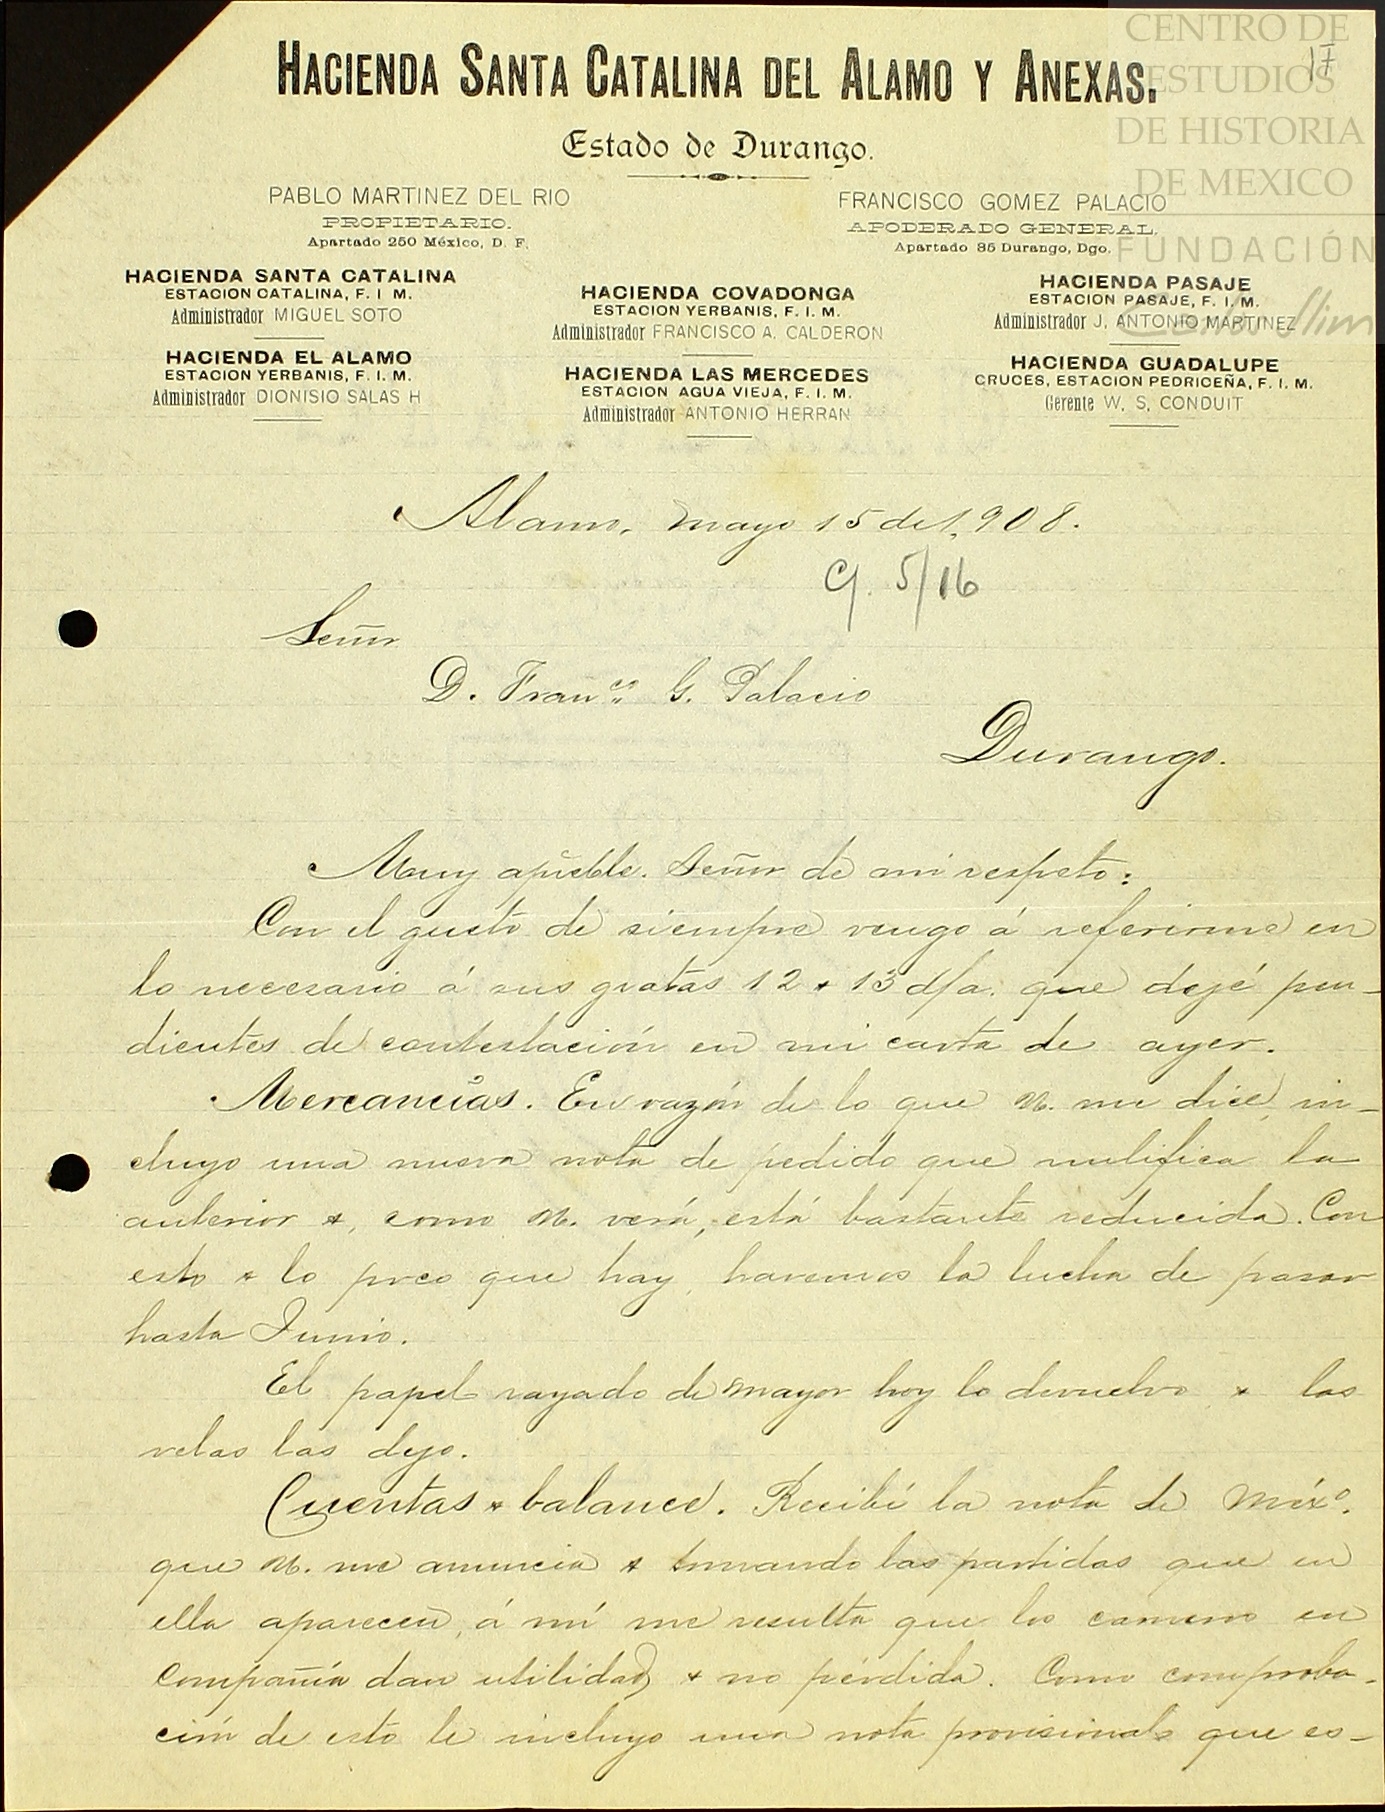 CENTRO DE
ESTUDIOS
DE HISTORIA
DE MEXICO
FUNDACIÓN
Carlos Slim
17
HACIENDA SANTA CATALINA DEL ALAMO Y ANEXAS.
Estado de Durango.
PABLO MARTINEZ DEL RIO
PROPIETARIO.
Apartado 250 México, D. F.
FRANCISCO GOMEZ PALACIO
APODERADO GENERAL.
Apartado 35 Durango, Dgo.
HACIENDA SANTA CATALINA
ESTACION CATALINA, F. I. M.
Administrador MIGUEL SOTO
HACIENDA COVADONGA
ESTACION YERBANIS, F. I. M.
Administrador FRANCISCO A. CALDERON
HACIENDA PASAJE
ESTACION PASAJE, F. I. M.
Administrador J. ANTONIO MARTINEZ
HACIENDA EL ALAMO
ESTACION YERBANIS, F. I. M.
Administrador DIONISIO SALAS H
HACIENDA LAS MERCEDES
ESTACION AGUA VIEJA, F. I. M.
Administrador ANTONIO HERRAN
HACIENDA GUADALUPE
CRUCES, ESTACION PEDRICEÑA, F. I. M.
Gerente W. S. CONDUIT
Alamo, Mayo 15 de 1,908.
C/. 5/16
Señor
D. Franco. G. Palacio
Durango.
Muy apreble. Señor de mi respeto:
Con el gusto de siempre vengo á referirme en
lo necesario á sus gratas 12 y 13 d/a. que dejé pen-
dientes de contestación en mi carta de ayer.
Mercancías. En razón de lo que U. me dice, in-
cluyo una nueva nota de pedido que nulifica la
anterior y, como U. verá, está bastante reducida. Con
esto y lo poco que hay, haremos la lucha de pasar
hasta Junio.
El papel rayado de mayor hoy lo devuelvo y las
velas las dejo.
Cuentas y balance. Recibí la nota de Méxo.
que U. me anuncia y tomando las partidas que en
ella aparecen, á mí me resulta que los carneros en
compañía dan utilidad y no pérdida. Como comproba-
ción de esto le incluyo una nota provisional que es-